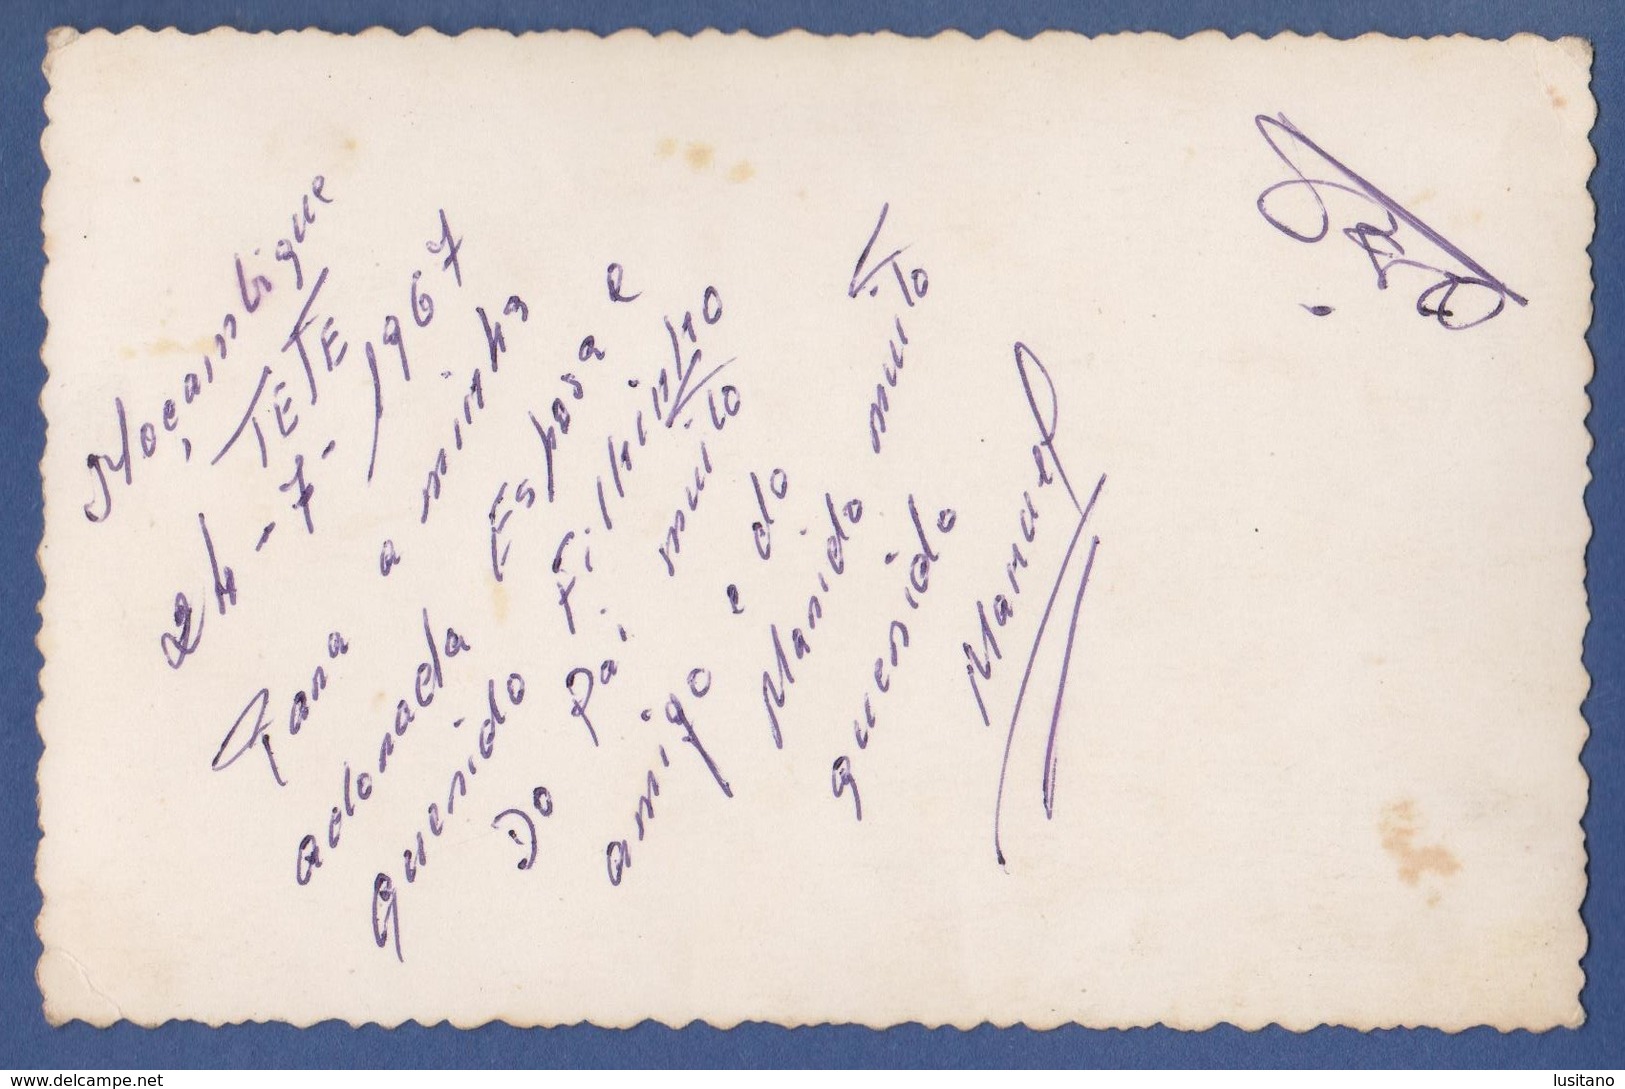 Moçambique
TETE
24-7-1967
Para a minha
adorada Esposa e
querido Filhinho
Do Pai muito
amigo e do
Marido muito
querido
Manuel
www.delcampe.net
lusitano